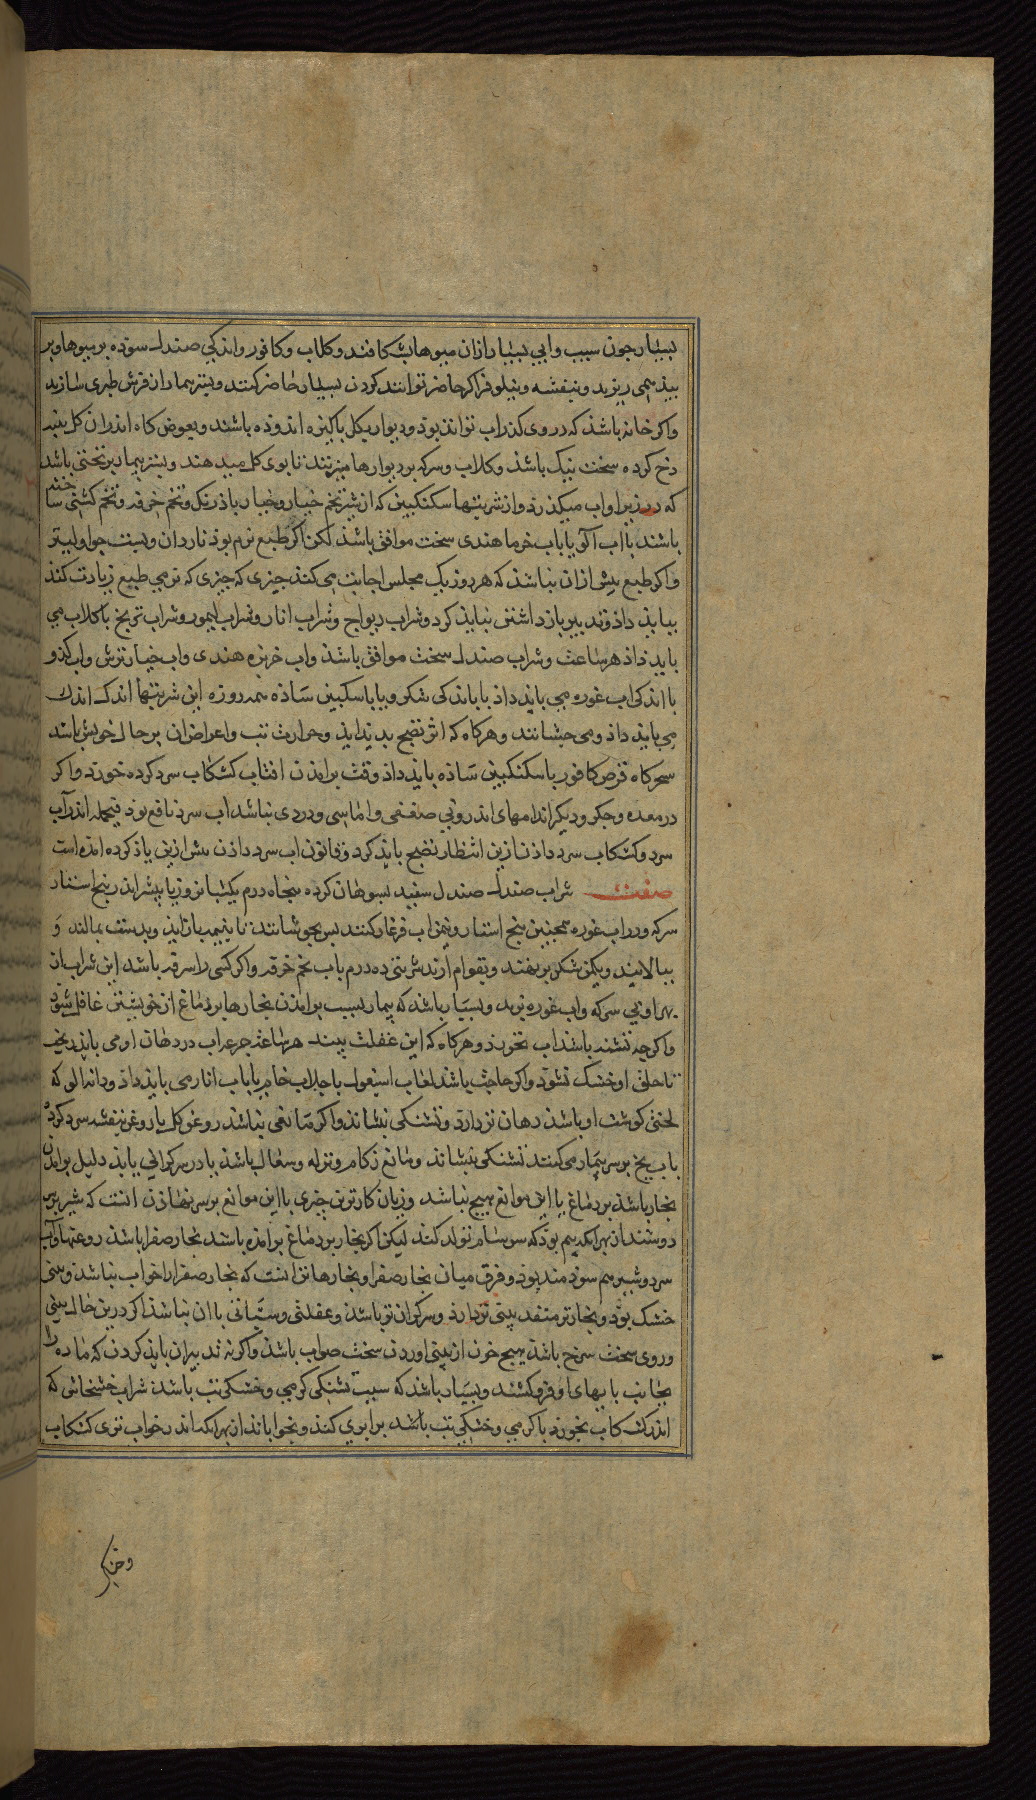 بسیار چون سیب وآبی بسیار ازان میوهای بشکافند وکلاب وکافور واندکی صندل سوده بر میوها وبر
بید همی ریزند وبنفشه ونیلوفر اکر حاضر توانند کردن بسیار حاضر کنند وبستر بیمار از فرش طبری سازند
واکر خانه باشذ که در وی کذر اب تواند بود ودیوار بکل پاکیزه اندوده باشند وبعوض کاه اندران کل پنبه
زخ کرده سخت نیک باشذ وکلاب وسرکه بر دیوارها میزنند تا بوی کل میدهند وبستر بیمار بر تختی باشذ
که در زیر او اب میکذرد واز شربتها سکنکبین که از شیر تخم خیار وخیار باذرنک وتخم خرفه وتخم کشنی ساخته
باشند با اب آلو یا باب خرما هندی سخت موافق باشذ لکن اکر طبع نرم بوذ ناردان وپست جو اولیتر
واکر طبع بیش ازان نباشذ که هر روز یک مجلس اجابت می کند چیزی که چیزی که نرمی طبع زیادت کند
نباید داذ وتدبیر باز داشتن نباید کرد وشراب ریواج وشراب انار وشراب لیمو وشراب ترنج با کلاب می
باید داذ هر ساعت وشراب صندل سخت موافق باشذ واب خربزه هندی واب خیار ترش واب کدو
با اندکی اب غوره می باید داذ یا باندکی شکر ویا با سکنکبین ساذه همه روزه این شربتها اندک اندک
می باید داذ ومی چشانند وهرکاه که اثر نضج بدید اید وحرارت تب واعراض ان بر حال خویش باشد
سحرکاه قرص کافور با سکنکبین ساذه باید داذ وقت برامدن افتاب کشکاب سرد کرده خورد واکر
در معده وجکر ودیکر اندامهای اندرونی ضعفی واماسی ودردی نباشد اب سرد نافع بود فیجمله اندر آب
سرد وکشکاب سرد داذن ازین انتظار نضج باید کرد وقانون اب سرد داذن بیش ازین یاذ کرده امده است
صفت شراب صندل صندل سفید بسوهان کرده پنجاه درم یکشبانروز یا بیشتر اندر پنج استار
سرکه ودر اب غوره همچنین پنج استار ونیمن اب فرغار کنند پس بجوشانند تا بنیمه باز اید وبدست بمالند و
ببالایند ویکمن شکر بر نهند وبقوام ارند شربتی ده درم باب تخم خرفه واکر کسی را سرفه باشد این شراب از
بهر او بی سرکه واب غوره بزند وبسیار باشد که بیمار بسبب برامدن بخارها بر دماغ از خویشتن غافل شود
واکرچه تشنه باشد اب نخورد وهرکاه که این غفلت بیند هر ساعة جرعه اب در دهان او می باید ریخت
تا حلق او خشک نشود واکر حاجت باشد لعاب اسبغول با جلاب خام یا باب انار می باید داذ ودانه الو که
لختی کوشت او باشد دهان تر دارد وتشنکی بنشاند واکر مانعی نباشد روغن کل یا روغن بنفشه سرد کرده
باب یخ بر سر بیمار می کنند تشنکی بنشاند ومانع زکام ونزله وسعال باشذ یا در سر کرانی یابد دلیل برامدن
بخار باشذ بر دماغ یا این موانع هیچ نباشد وزیان کارترین چیزی با این موانع بر سر نهاذن انست که شیر بر سر
دوشند از بهر انکه بیم بوذ که سرسام تولد کند لیکن اکر بخار بر دماغ برامده باشد بخار صفرا باشد روغنها واب
سرد وشیر هم سوذمند بود وفرق میان بخار صفرا وبخارها تر انست که بخار صفرا را خواب نباشد وبینی
خشک بوذ وبخار تر منفذ بینی تر دارذ وسر کران تر باشد وغفلتی وسباتی با ان نباشد اکر درین حال بینی
وروی سخت سرخ باشد هیچ خون از بینی اوردن سخت صواب باشد واکر نه تدبیر ان باید کردن که ماده را
بجانب پایهای او فرو کشند وبسیار باشد که سبب تشنکی کرمی وخشکی تب باشد شراب خشخاش که
اندر کشکاب بخورد با کرمی وخشکی تب باشد برابری کند وبخواباند از بهر انکه اندر خواب تری کشکاب
وخنکی